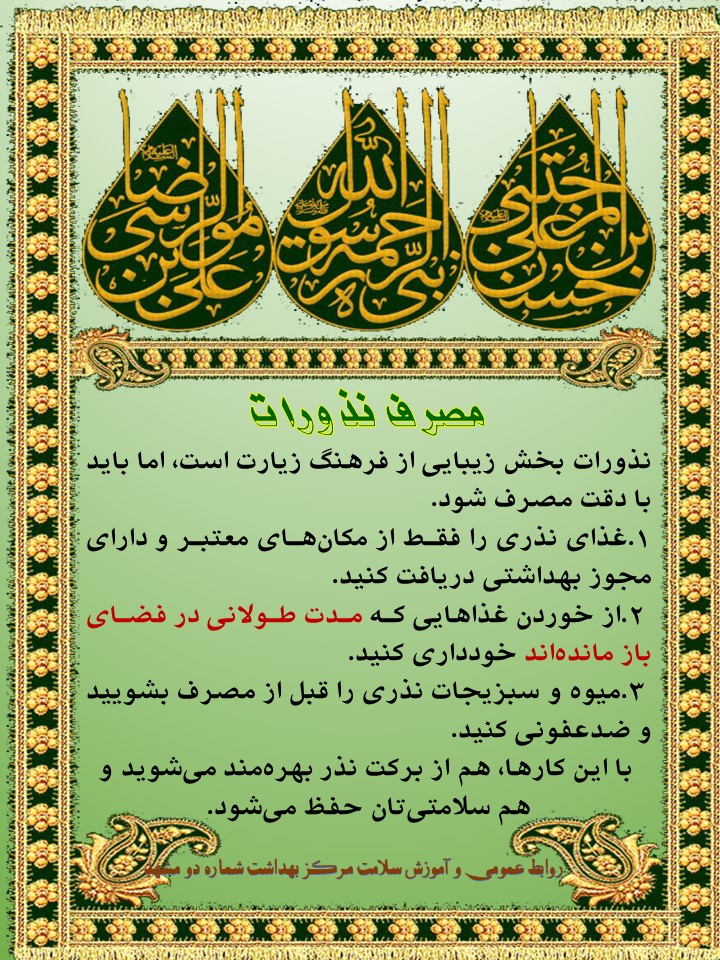 حسن بن علی المجتبی
نبی الرحمه رسول الله
علی بن موسی الرضا
مصرف نذورات
نذورات بخش زیبایی از فرهنگ زیارت است، اما باید
با دقت مصرف شود.
۱.غذای نذری را فقط از مکان‌های معتبر و دارای
مجوز بهداشتی دریافت کنید.
۲.از خوردن غذاهایی که مدت طولانی در فضای
باز مانده‌اند خودداری کنید.
۳.میوه و سبزیجات نذری را قبل از مصرف بشویید
و ضدعفونی کنید.
با این کارها، هم از برکت نذر بهره‌مند می‌شوید و
هم سلامتی‌تان حفظ می‌شود.
روابط عمومی و آموزش سلامت مرکز بهداشت شماره دو مشهد